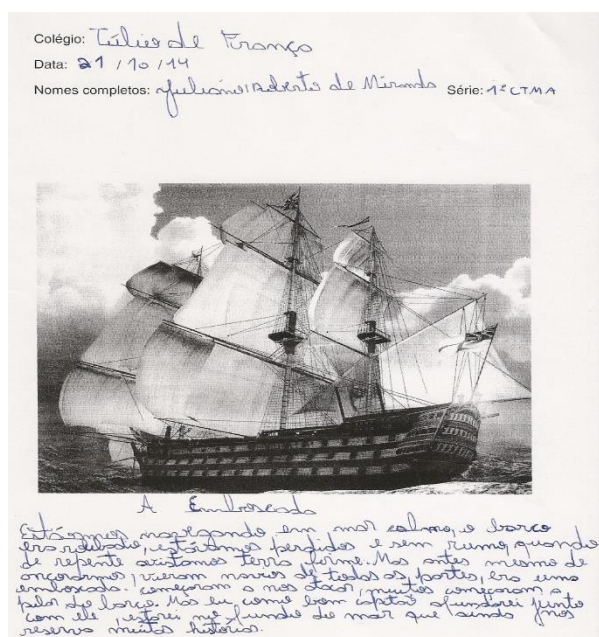 Colégio: Túlio de França
Data: 21 / 10 / 14
Nomes completos: Juliano Roberto de Miranda Série: 1º CTMA
A Emboscada
Estávamos navegando em mar calmo, o barco
era robusto, estávamos perdidos e sem rumo, quando
de repente avistamos terra firme. Mas antes mesmo de
ancorarmos, vieram navios de todos os portes, era uma
emboscada. começaram a nos atacar, muitos começaram a
pular do barco. Mas eu como bom capitão afundarei junto
com ele, estarei no fundo do mar que ainda nos
reserva muitas histórias.